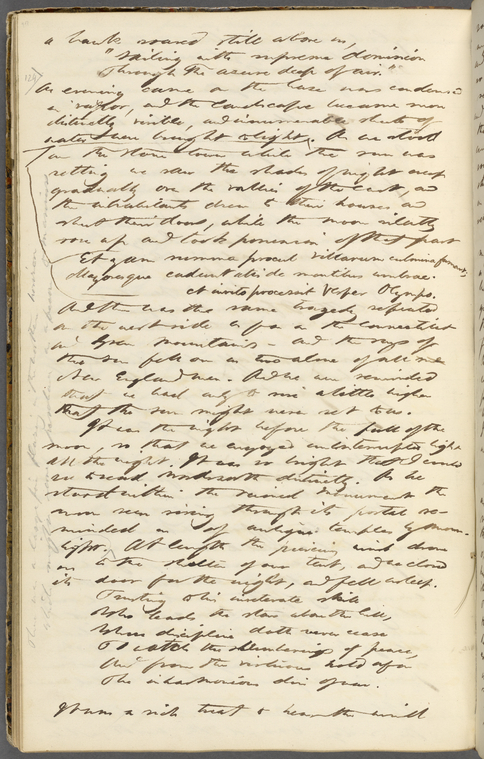 a hawk soared still above us,
"Sailing with supreme dominion
Through the azure deep of air."
As evening came on the haze was condensed
in vapor, and the landscape became more
distinctly visible, and innumerable sheets of
water were brought to light. As we stood
on the stone tower while the sun was
setting we saw the shades of night creep
gradually over the vallies of the east, and
the inhabitants drew to their houses and
shut their doors, while the moon silently
rose up and took possession of that part
Et jam summa procul villarum culmina fumant,
Majoresque cadunt altis de montibus umbrae.
et invito processit Vesper Olympo.
And then was the same tragedy repeated
on the west side as far as the Connecticut
and Green Mountains — and the rays of
the sun fell on us two alone of all
New England men. And we were reminded
that we had only to rise a little higher
that the sun might never set to us.
It was the night before the full of the
moon so that we enjoyed uninterrupted light
all the night. It was so bright that we could
see to read Wordsworth distinctly. As we
stood within the
moon seen rising through its portal re-
minded us of antique temples by moon-
light. At length the piercing wind drove
us to the shelter of our tent, and we closed
its door for the night, and fell asleep.
Trusting to his inveterate skill
Who leads the stars above the hill,
Whose discipline doth never cease
To watch the slumberings of peace,
And from the virtuous hold afar
The inharmonious din of war.
It was a rich treat to hear the wind